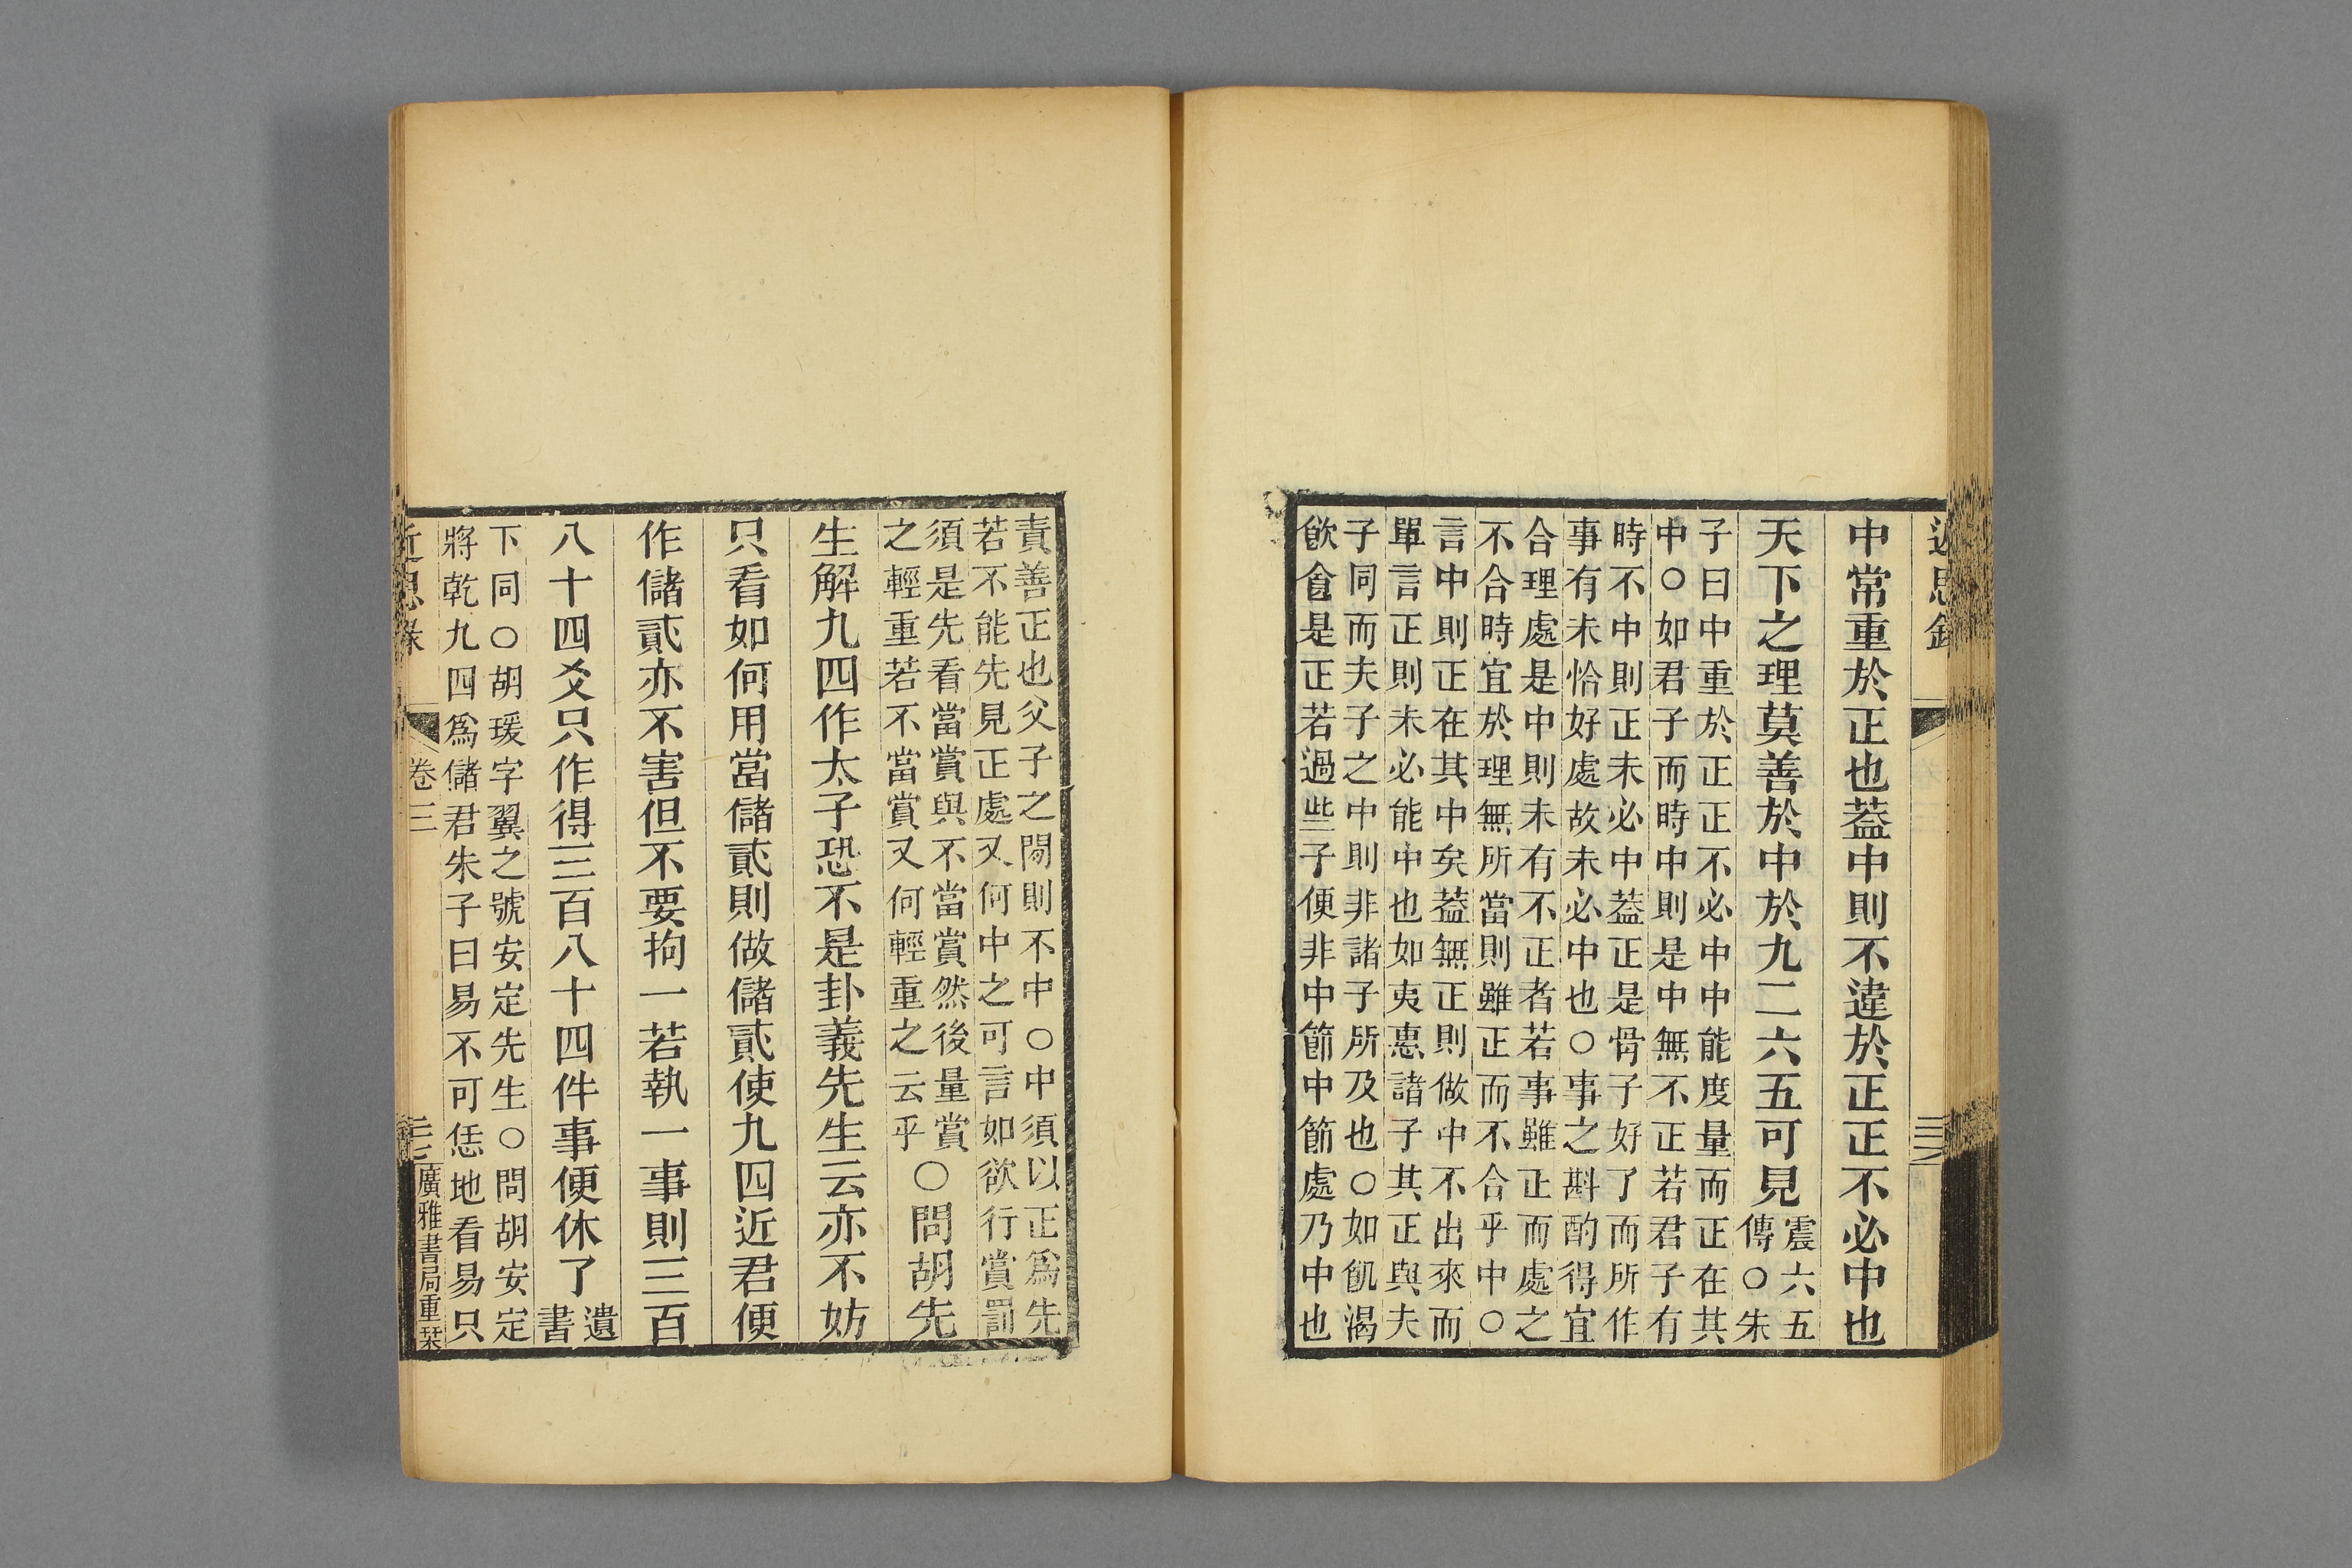 近思錄
中常重於正也蓋中則不違於正正不必中也
天下之理莫善於中於九二六五可見
震六五
傳○朱
子曰中重於正正不必中中能度量而正在其
中○如君子而時中則是中無不正若君子有
時不中則正未必中蓋正是骨子好了而所作
事有未恰好處故未必中也○事之斟酌得宜
合理處是中則未有不正者若事雖正而處之
不合時宜於理無所當則雖正而不合乎中○
言中則正在其中矣蓋無正則做中不出來而
單言正則未必能中也如夷惠諸子其正與夫
子同而夫子之中則非諸子所及也○如飢渴
飲食是正若過些子便非中節中節處乃中也
責善正也父子之閒則不中○中須以正爲先
若不能先見正處又何中之可言如欲行賞罰
須是先看當賞與不當賞然後量賞
之輕重若不當賞又何輕重之云乎
○問胡先
生解九四作太子恐不是卦義先生云亦不妨
只看如何用當儲貳則做儲貳使九四近君便
作儲貳亦不害但不要拘一若執一事則三百
八十四爻只作得三百八十四件事便休了
遺
書
下同○胡瑗字翼之號安定先生○問胡安定
將乾九四爲儲君朱子曰易不可恁地看易只
近思錄
卷三
廣雅書局重栞